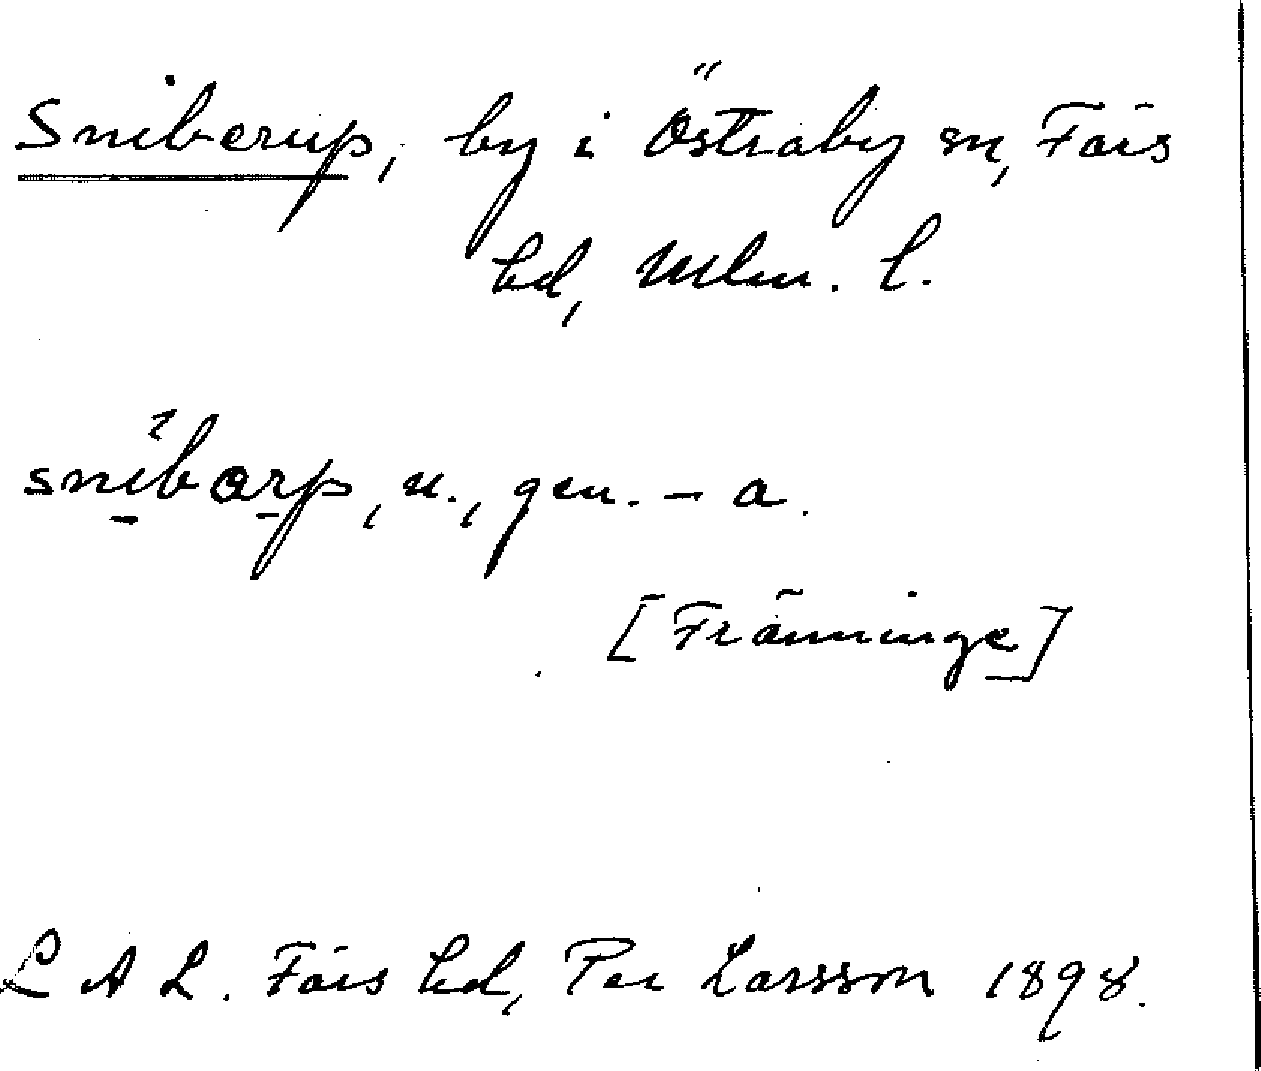 Sniberup, by i Östraby sn, Färs
hd, Mlm. l.
snibarp, n., gen. - a.
[Fränninge]
L A L. Färs hd, Per Larsson 1898.